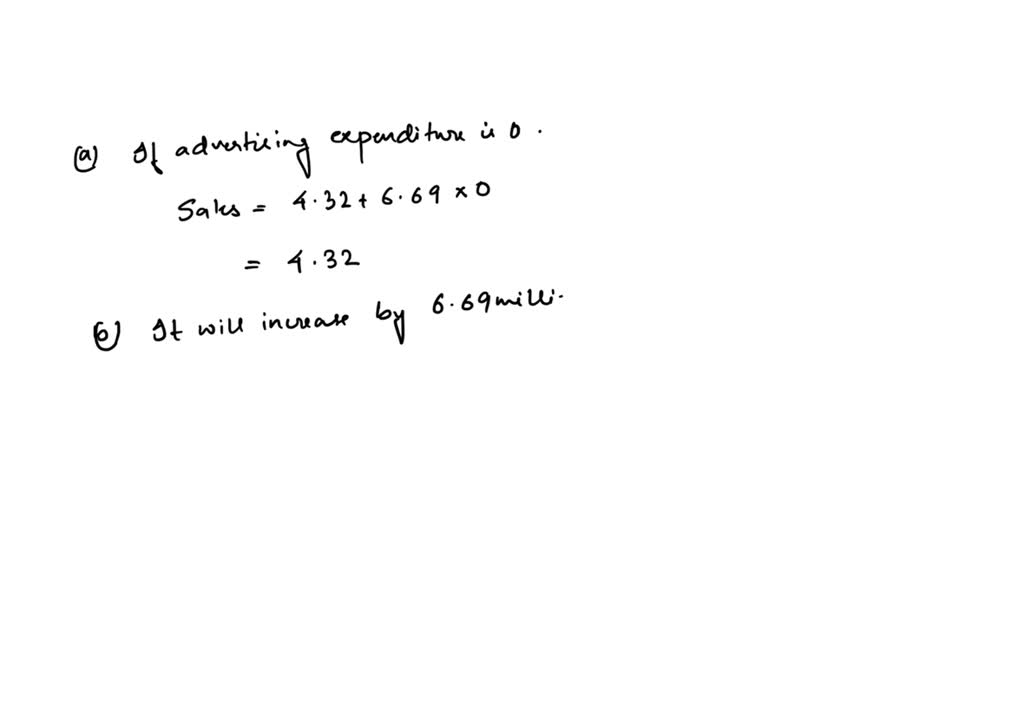 (a) If advertising expenditure is 0.
Sales = 4.32 + 6.69 × 0
= 4.32
(b) It will increase by 6.69 milli.